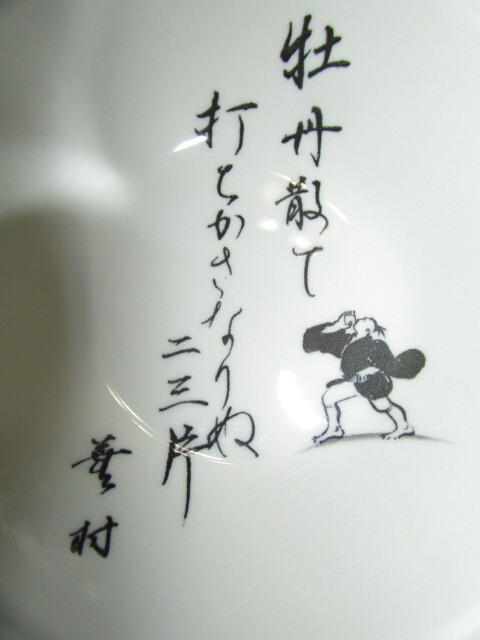 牡丹散て
打ちかさなりぬ
二三片
蕪村